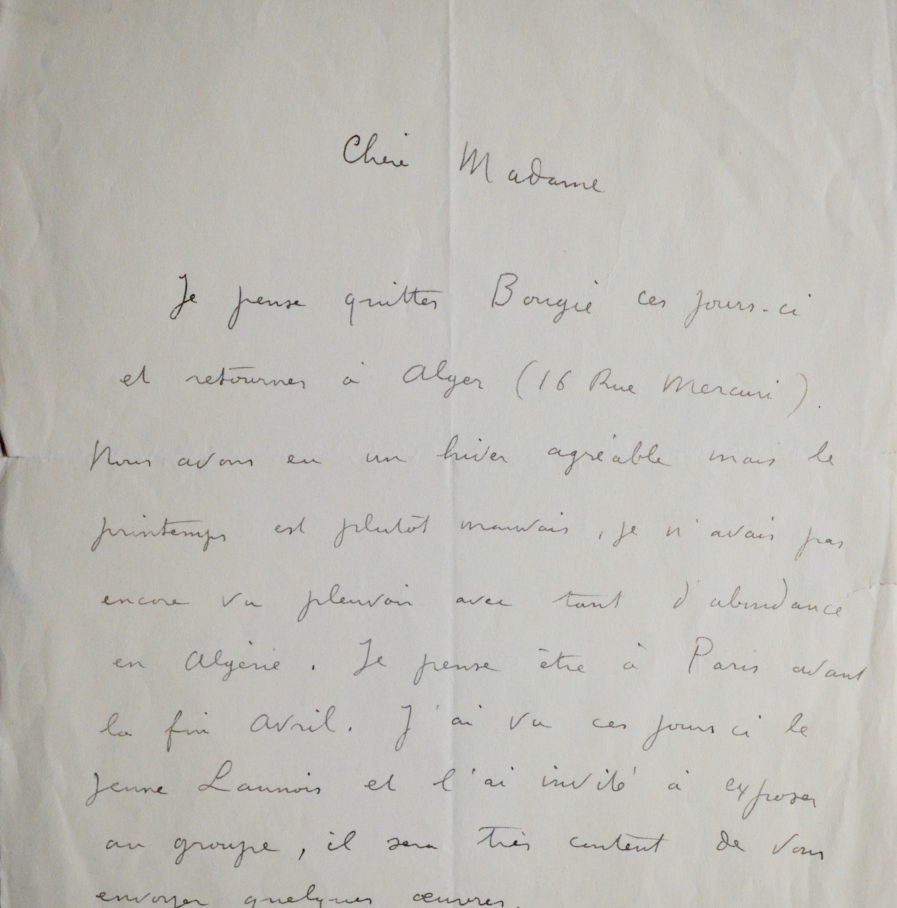 Chère Madame
Je pense quitter Bougie ces jours-ci
et retourner à Alger (16 Rue Mercuri).
Nous avons eu un hiver agréable mais le
printemps est plutôt mauvais, je n'avais pas
encore vu pleuvoir avec tant d'abondance
en Algérie. Je pense être à Paris avant
la fin Avril. J'ai vu ces jours ci le
jeune Launois et l'ai invité à exposer
au groupe, il sera très content de vous
envoyer quelques œuvres.